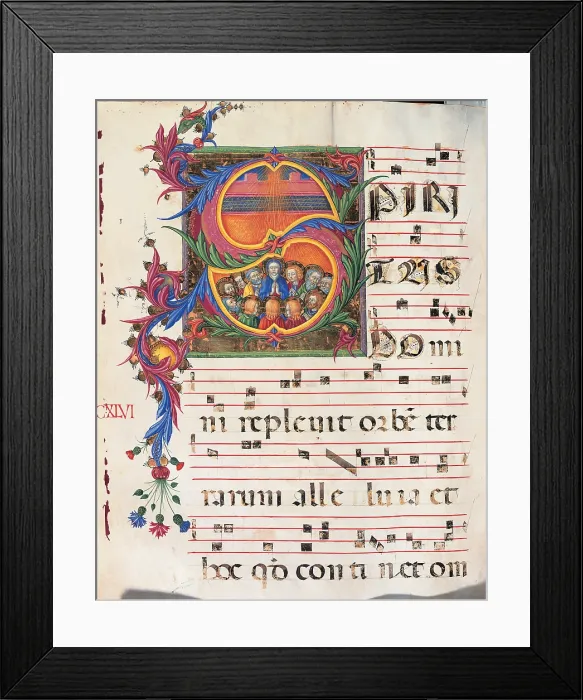 SPIRI
TUS
DOmi
ni repleuit orbē ter
CXLVI
rarum alle luia et
hoc qđ conti net om